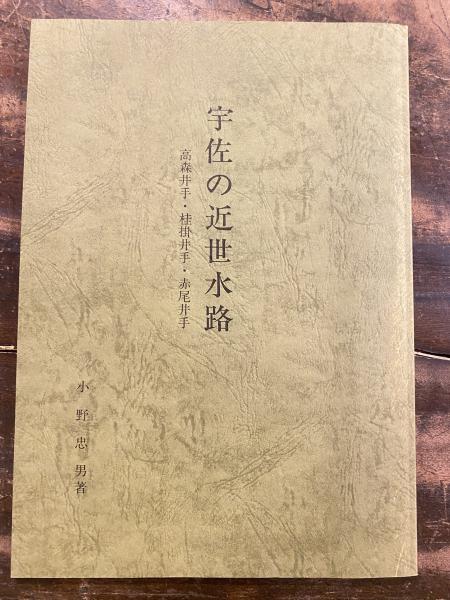 宇佐の近世水路
高森井手・桂掛井手・赤尾井手
小野忠男著